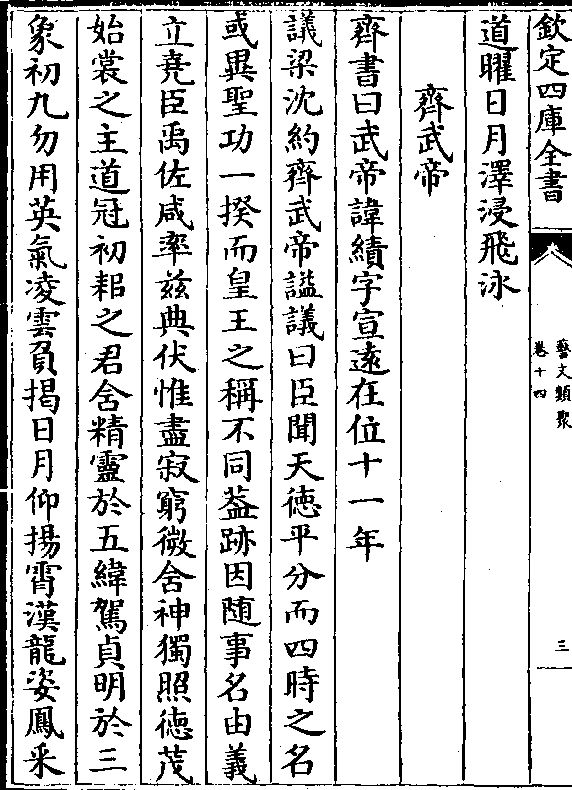 欽定四庫全書
藝文類聚
卷十四
三
道曜日月澤浸飛泳
齊武帝
齊書曰武帝諱績字宣遠在位十一年
議梁沈約齊武帝謚議曰臣聞天徳平分而四時之名
或異聖功一揆而皇王之稱不同葢跡因随事名由義
立堯臣禹佐咸率兹典伏惟盡寂窮微舍神獨照徳茂
始裳之主道冠初耜之君舍精靈於五緯駕貞明於三
象初九勿用英氣凌雲負揭日月仰揚霄漢龍姿鳳采